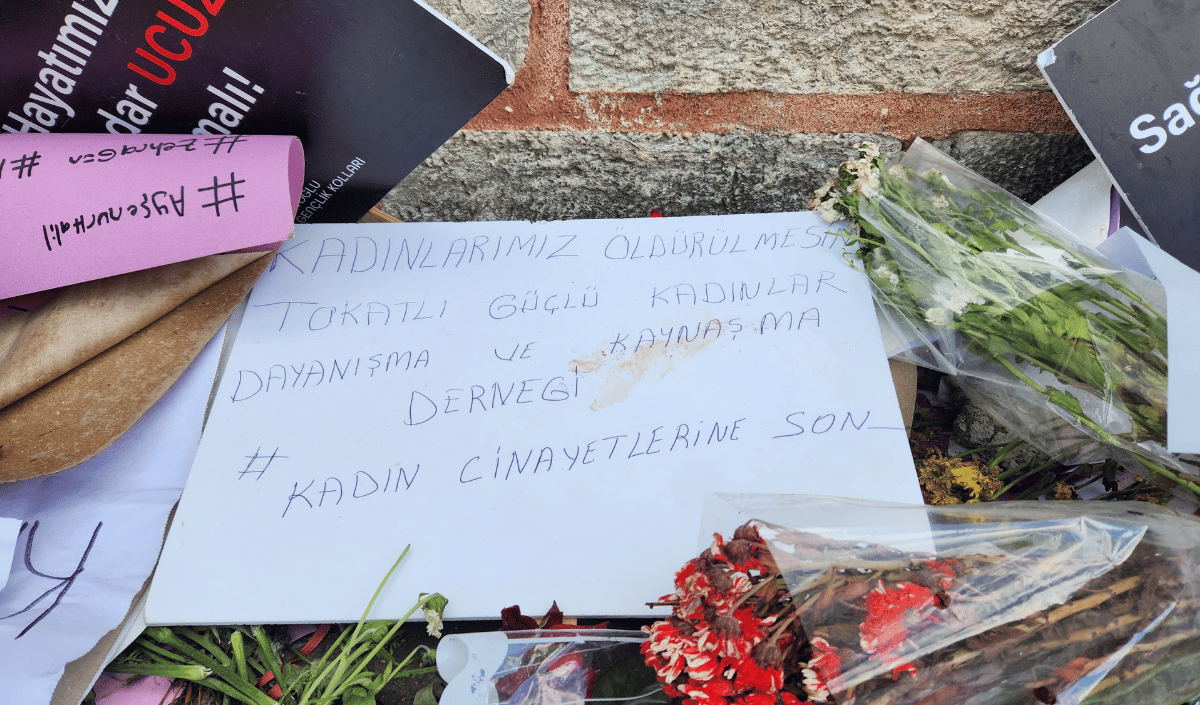 Hayatımız
dar UCUZ
malı!
GENÇLİK KOLLARI
#ZehraGün
#
#AyşenurHalil
Sağ
KADINLARIMIZ ÖLDÜRÜLMESİN
TOKATLI GÜÇLÜ KADINLAR
DAYANIŞMA VE KAYNAŞMA
DERNEGİ
# KADIN CİNAYETLERİNE SON